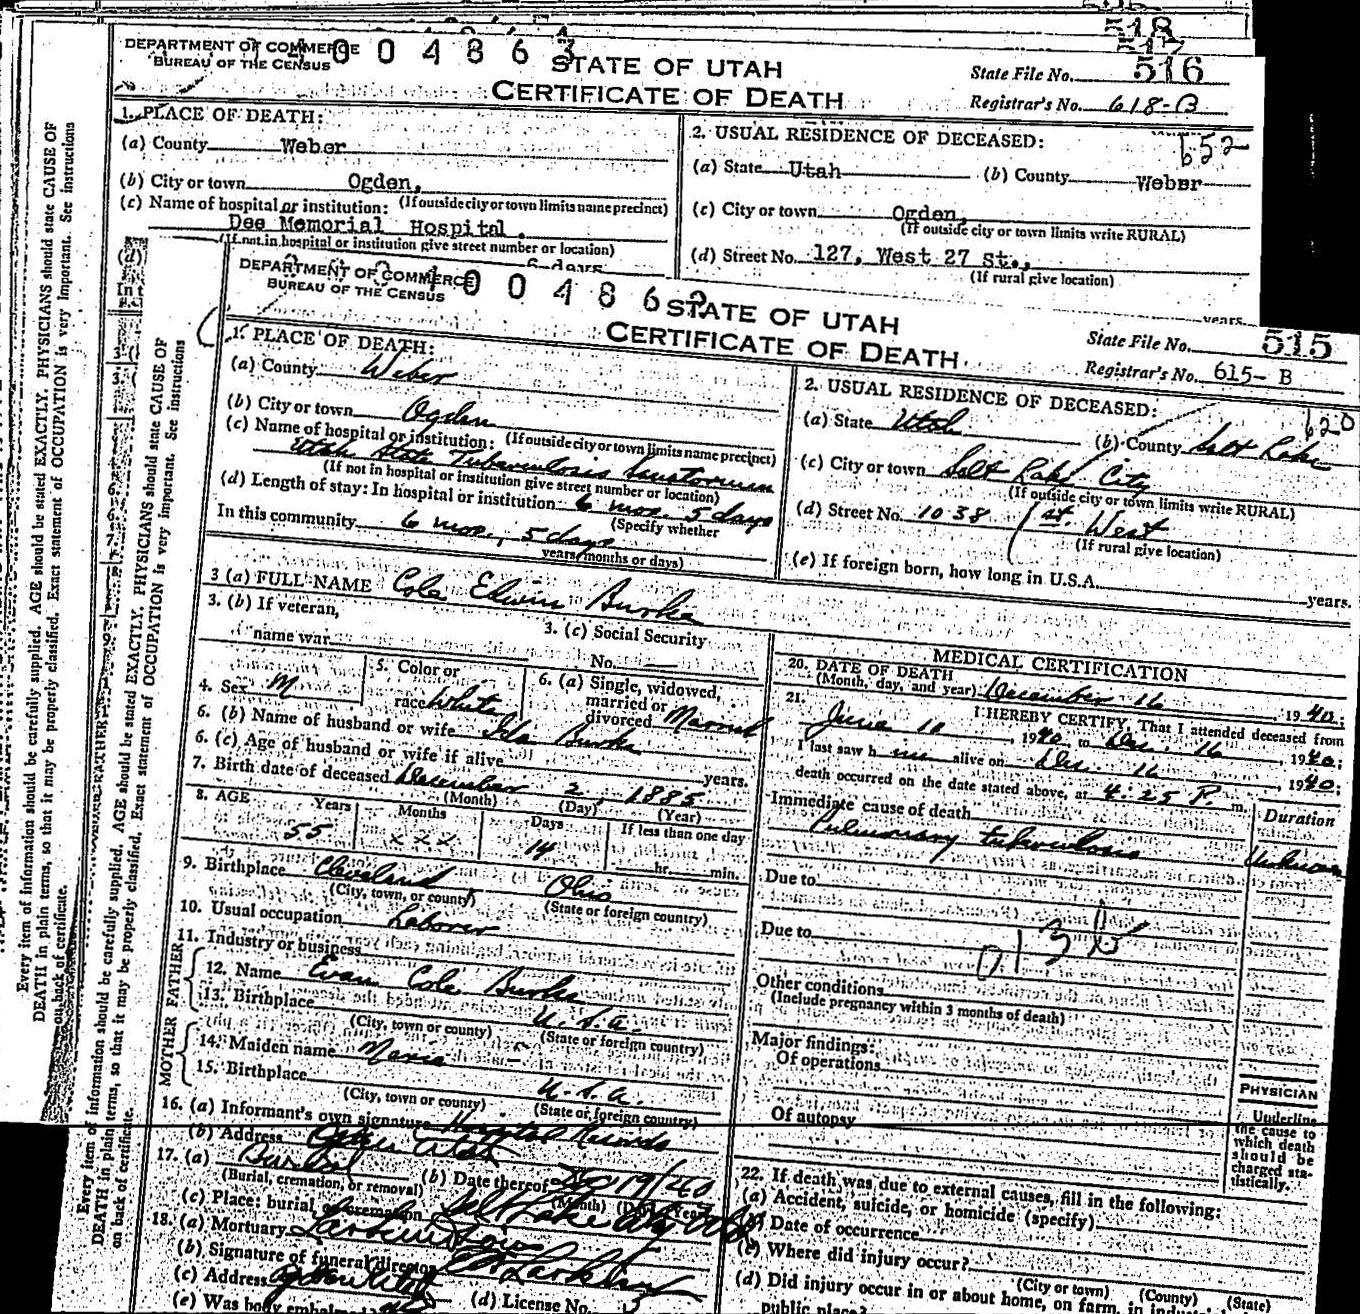 518
517
DEPARTMENT OF COMMERCE
BUREAU OF THE CENSUS
0 0 4 8 6 3
STATE OF UTAH
CERTIFICATE OF DEATH
State File No. 516
Registrar's No. 618-B
652
1. PLACE OF DEATH:
(a) County Weber
(b) City or town Ogden,
(If outside city or town limits name precinct)
(c) Name of hospital or institution:
Dee Memorial Hospital.
(If not in hospital or institution give street number or location)
6 days
2. USUAL RESIDENCE OF DECEASED:
(a) State Utah (b) County Weber
(c) City or town Ogden,
(If outside city or town limits write RURAL)
(d) Street No. 127, West 27 st.,
(If rural give location)
years.
Every item of information should be carefully supplied. AGE should be stated EXACTLY. PHYSICIANS should state CAUSE OF
DEATH in plain terms, so that it may be properly classified. Exact statement of OCCUPATION is very important. See instructions
on back of certificate.
DEPARTMENT OF COMMERCE
BUREAU OF THE CENSUS
0 0 4 8 6 2
STATE OF UTAH
CERTIFICATE OF DEATH
State File No. 515
Registrar's No. 615-B
620
1. PLACE OF DEATH:
(a) County Weber
(b) City or town Ogden
(If outside city or town limits name precinct)
(c) Name of hospital or institution:
Utah State Tuberculosis Sanatorium
(If not in hospital or institution give street number or location)
(d) Length of stay: In hospital or institution 6 mos. 5 days
(Specify whether
In this community 6 mos., 5 days
years, months or days)
2. USUAL RESIDENCE OF DECEASED:
(a) State Utah (b) County Salt Lake
(c) City or town Salt Lake City
(If outside city or town limits write RURAL)
(d) Street No. 1038 1st. West
(If rural give location)
(e) If foreign born, how long in U.S.A. years.
3 (a) FULL NAME Cole Edwin Burke
3. (b) If veteran,
name war
3. (c) Social Security
No. —
4. Sex M
5. Color or
race White
6. (a) Single, widowed,
married or
divorced Married
6. (b) Name of husband or wife Ida Burke
6. (c) Age of husband or wife if alive years.
7. Birth date of deceased December 2, 1885
(Month) (Day) (Year)
8. AGE Years Months Days If less than one day
55 xxx 14 hr. min.
9. Birthplace Cleveland Ohio
(City, town, or county) (State or foreign country)
10. Usual occupation Laborer
11. Industry or business
FATHER
12. Name Evan Cole Burke
13. Birthplace U.S.A.
(City, town or county) (State or foreign country)
MOTHER
14. Maiden name Maria —
15. Birthplace U.S.A.
(City, town or county) (State or foreign country)
16. (a) Informant's own signature Hospital Records
(b) Address Ogden Utah
17. (a) Burial (b) Date thereof 19/40
(Burial, cremation, or removal) (Month) (Day) (Year)
(c) Place: burial or cremation Salt Lake City Utah
18. (a) Mortuary Larkin
(b) Signature of funeral director Larkin
(c) Address Ogden Utah
(e) Was body embalmed? (d) License No.
MEDICAL CERTIFICATION
20. DATE OF DEATH
(Month, day, and year) December 16, 1940;
21. I HEREBY CERTIFY, That I attended deceased from
June 10, 1940 to Dec. 16, 1940;
I last saw h im alive on Dec. 16, 1940;
death occurred on the date stated above, at 4:25 P. m.
Immediate cause of death Duration
Pulmonary tuberculosis Unknown
Due to
Due to
Other conditions
(Include pregnancy within 3 months of death)
Major findings:
Of operations
Of autopsy
PHYSICIAN
Underline
the cause to
which death
should be
charged sta-
tistically.
22. If death was due to external causes, fill in the following:
(a) Accident, suicide, or homicide (specify)
(b) Date of occurrence
(c) Where did injury occur?
(City or town) (County) (State)
(d) Did injury occur in or about home, on farm, in
public place?
Every item of information should be carefully supplied. AGE should be stated EXACTLY. PHYSICIANS should state CAUSE OF
DEATH in plain terms, so that it may be properly classified. Exact statement of OCCUPATION is very important. See instructions
on back of certificate.